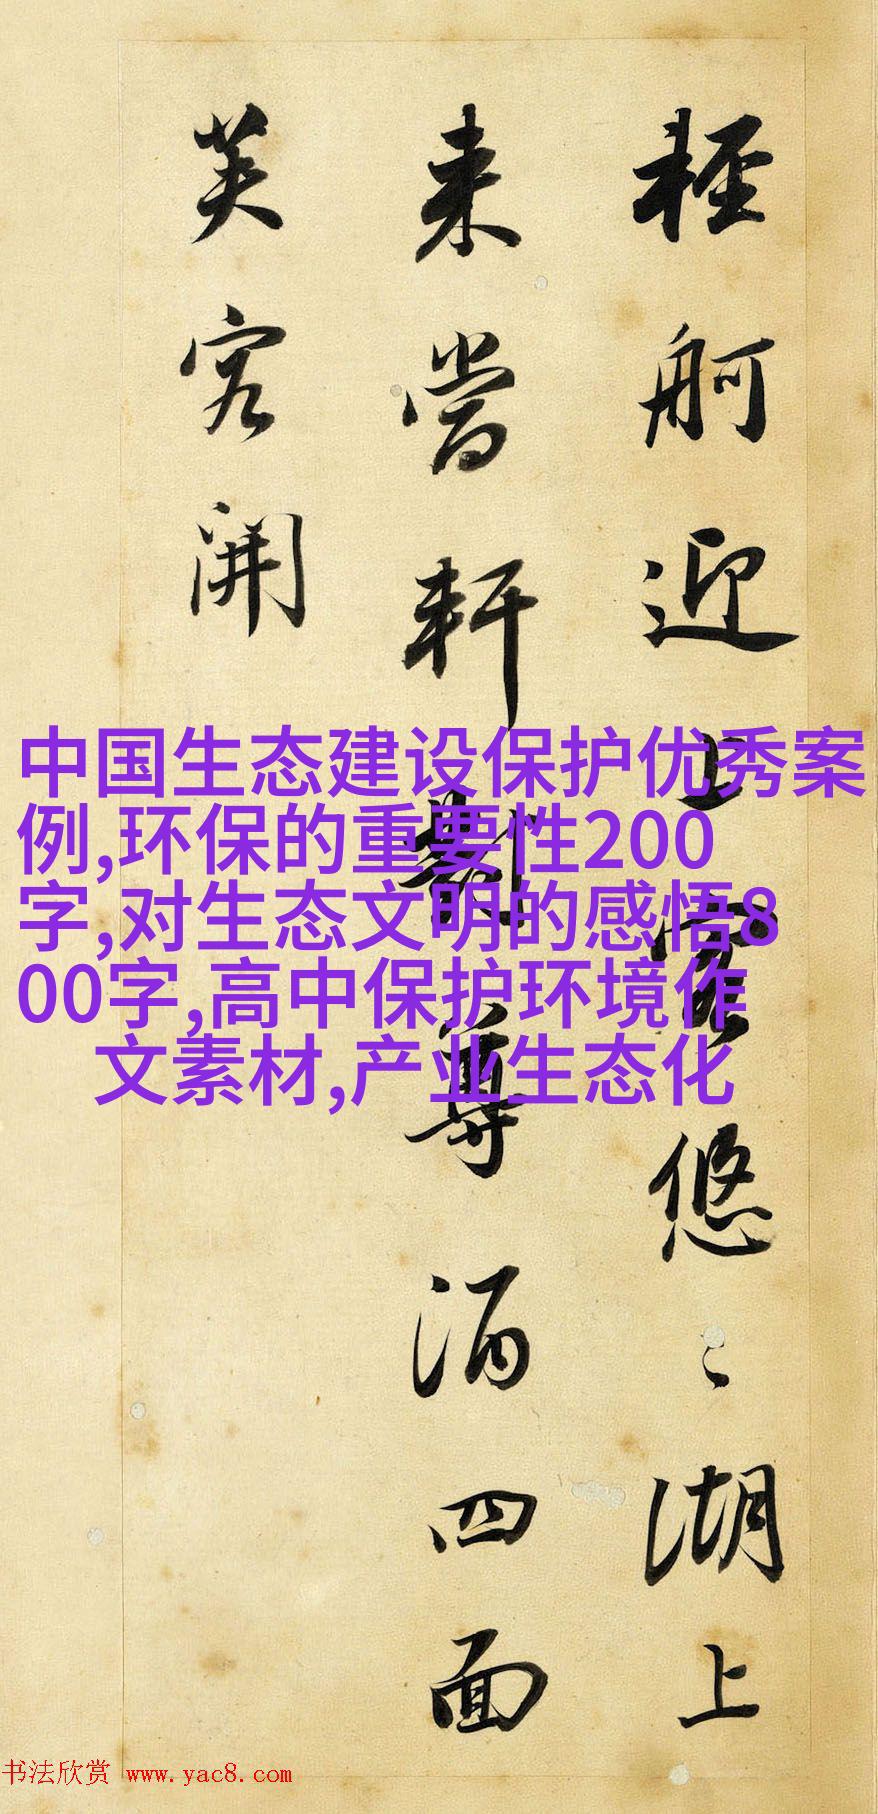 輕舸迎上客悠々湖上
来當軒對尊酒四面
芙容開
中国生态建设保护优秀案
例,环保的重要性200
字,对生态文明的感悟8
00字,高中保护环境作
文素材,产业生态化
书法欣赏 www.yac8.com